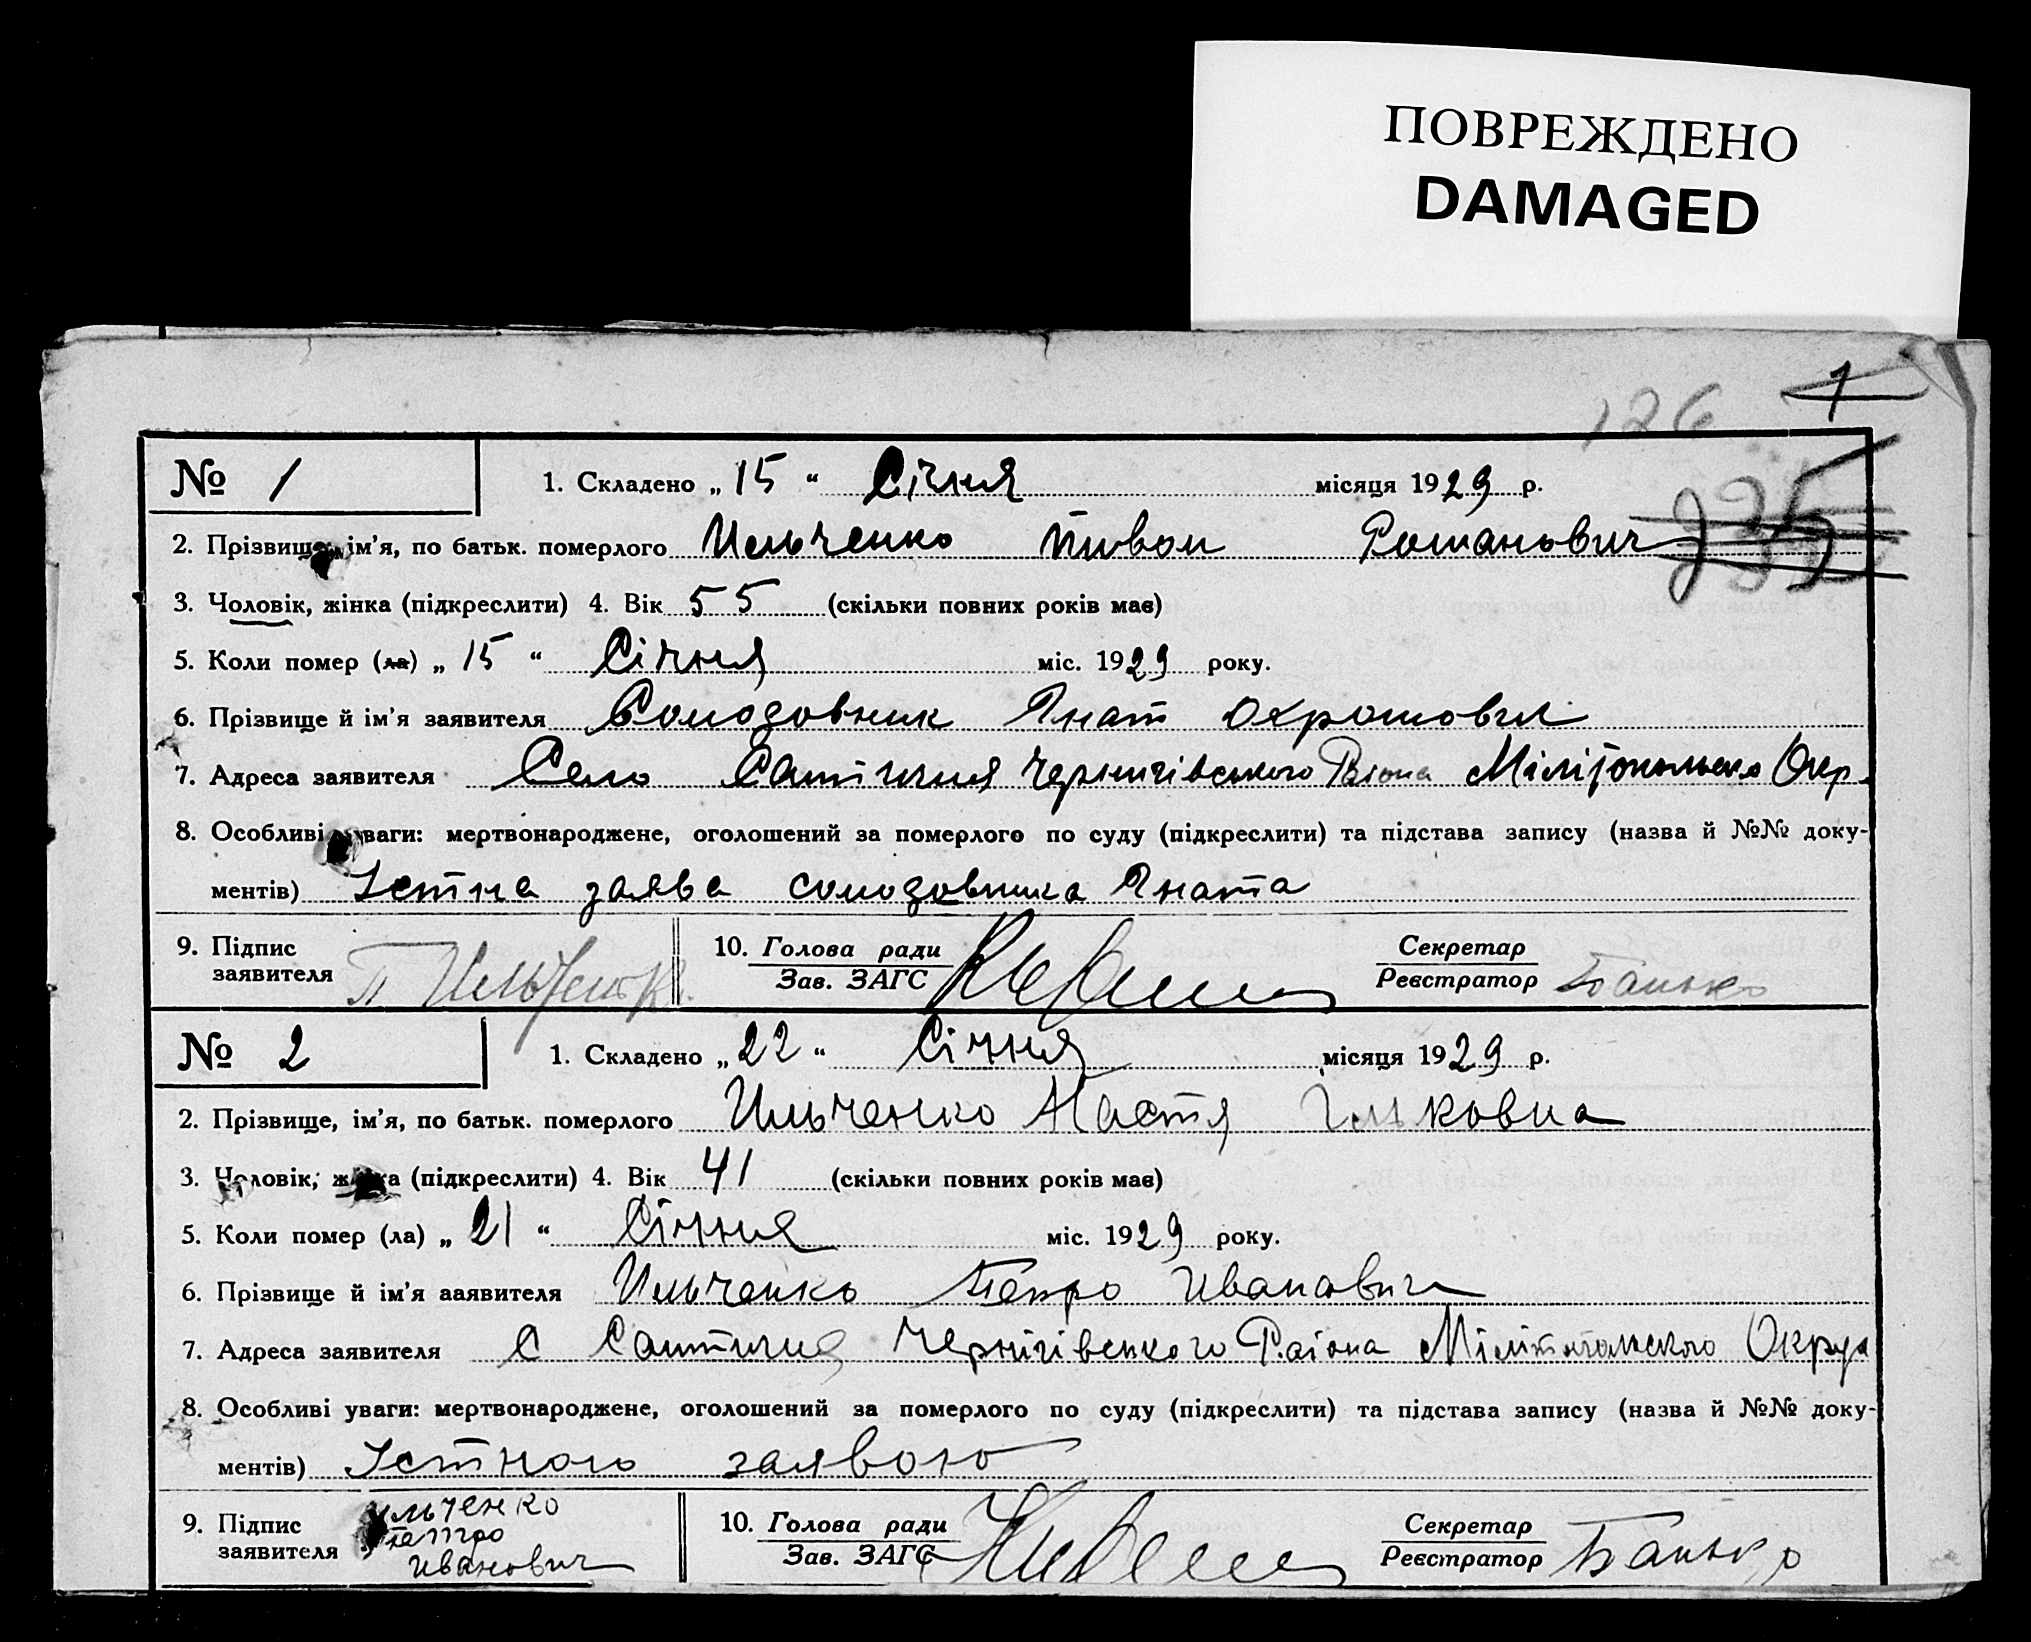 ПОВРЕЖДЕНО
DAMAGED
1
126
235
№ 1
1. Складено „ 15 “ Січня місяця 1929 р.
2. Прізвище, ім’я, по батьк. померлого Ильченко Романович
3. Чоловік, жінка (підкреслити) 4. Вік 55 (скільки повних років має)
5. Коли помер (ла) „ 15 “ Січня міс. 1929 року.
6. Прізвище й ім’я заявителя Солодовник Гнат
7. Адреса заявителя Село Салтичия Чернигівського Раіона Мілітопольсько Окр.
8. Особливі уваги: мертвонароджене, оголошений за померлого по суду (підкреслити) та підстава запису (назва й №№ доку-
ментів) Істна заява солодовника Гната
9. Підпис
заявителя П Ильченк
10. Голова ради
Зав. ЗАГС
Секретар
Реєстратор Банько
№ 2
1. Складено „ 22 “ Січня місяця 1929 р.
2. Прізвище, ім’я, по батьк. померлого Ильченко Настя Ильковна
3. Чоловік, жінка (підкреслити) 4. Вік 41 (скільки повних років має)
5. Коли помер (ла) „ 21 “ Січня міс. 1929 року.
6. Прізвище й ім’я заявителя Ильченко Петро Иванович
7. Адреса заявителя С Салтичия Чернігівського Раіона Мілітопольского Округа
8. Особливі уваги: мертвонароджене, оголошений за померлого по суду (підкреслити) та підстава запису (назва й №№ доку-
ментів) Істного заявою
9. Підпис
заявителя
Ильченко
Петро
Иванович
10. Голова ради
Зав. ЗАГС
Секретар
Реєстратор Банько